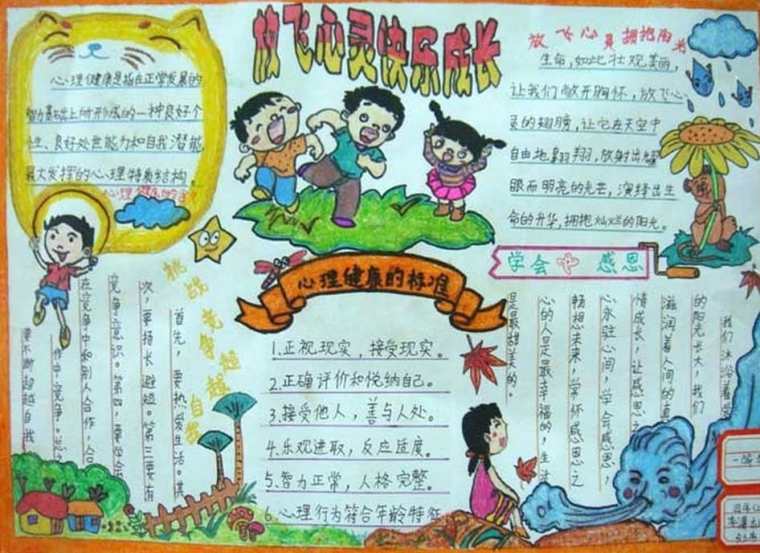 放飞心灵快乐成长
心理健康是指在正常发展的
智力基础上所形成的一种良好个
性、良好处世能力和自我潜能
最大发挥的心理特质结构。
放飞心灵拥抱阳光
生命，如此壮观美丽，
让我们敞开胸怀，放飞心
灵的翅膀，让它在天空中
自由地翱翔，放射出耀
眼而明亮的光芒，演绎出生
命的升华，拥抱灿烂的阳光。
挑战竞争超越自我
首先，要热爱生活。其
次，要扬长避短。第三要有
竞争意识。第四，要学会
在竞争中和别人合作，合
作中竞争。总之
要不断超越自我
心理健康的标准
1.正视现实，接受现实。
2.正确评价和悦纳自己。
3.接受他人，善与人处。
4.乐观进取，反应适度。
5.智力正常，人格完整。
6.心理行为符合年龄特征
学会 感恩
我们沐浴着
的阳光长大，我们
滋润着人间的真
情成长，让感恩之
心永驻心间，学会感恩，
畅想未来，常怀感恩之
心的人是最幸福的，生活
是最甜美的。